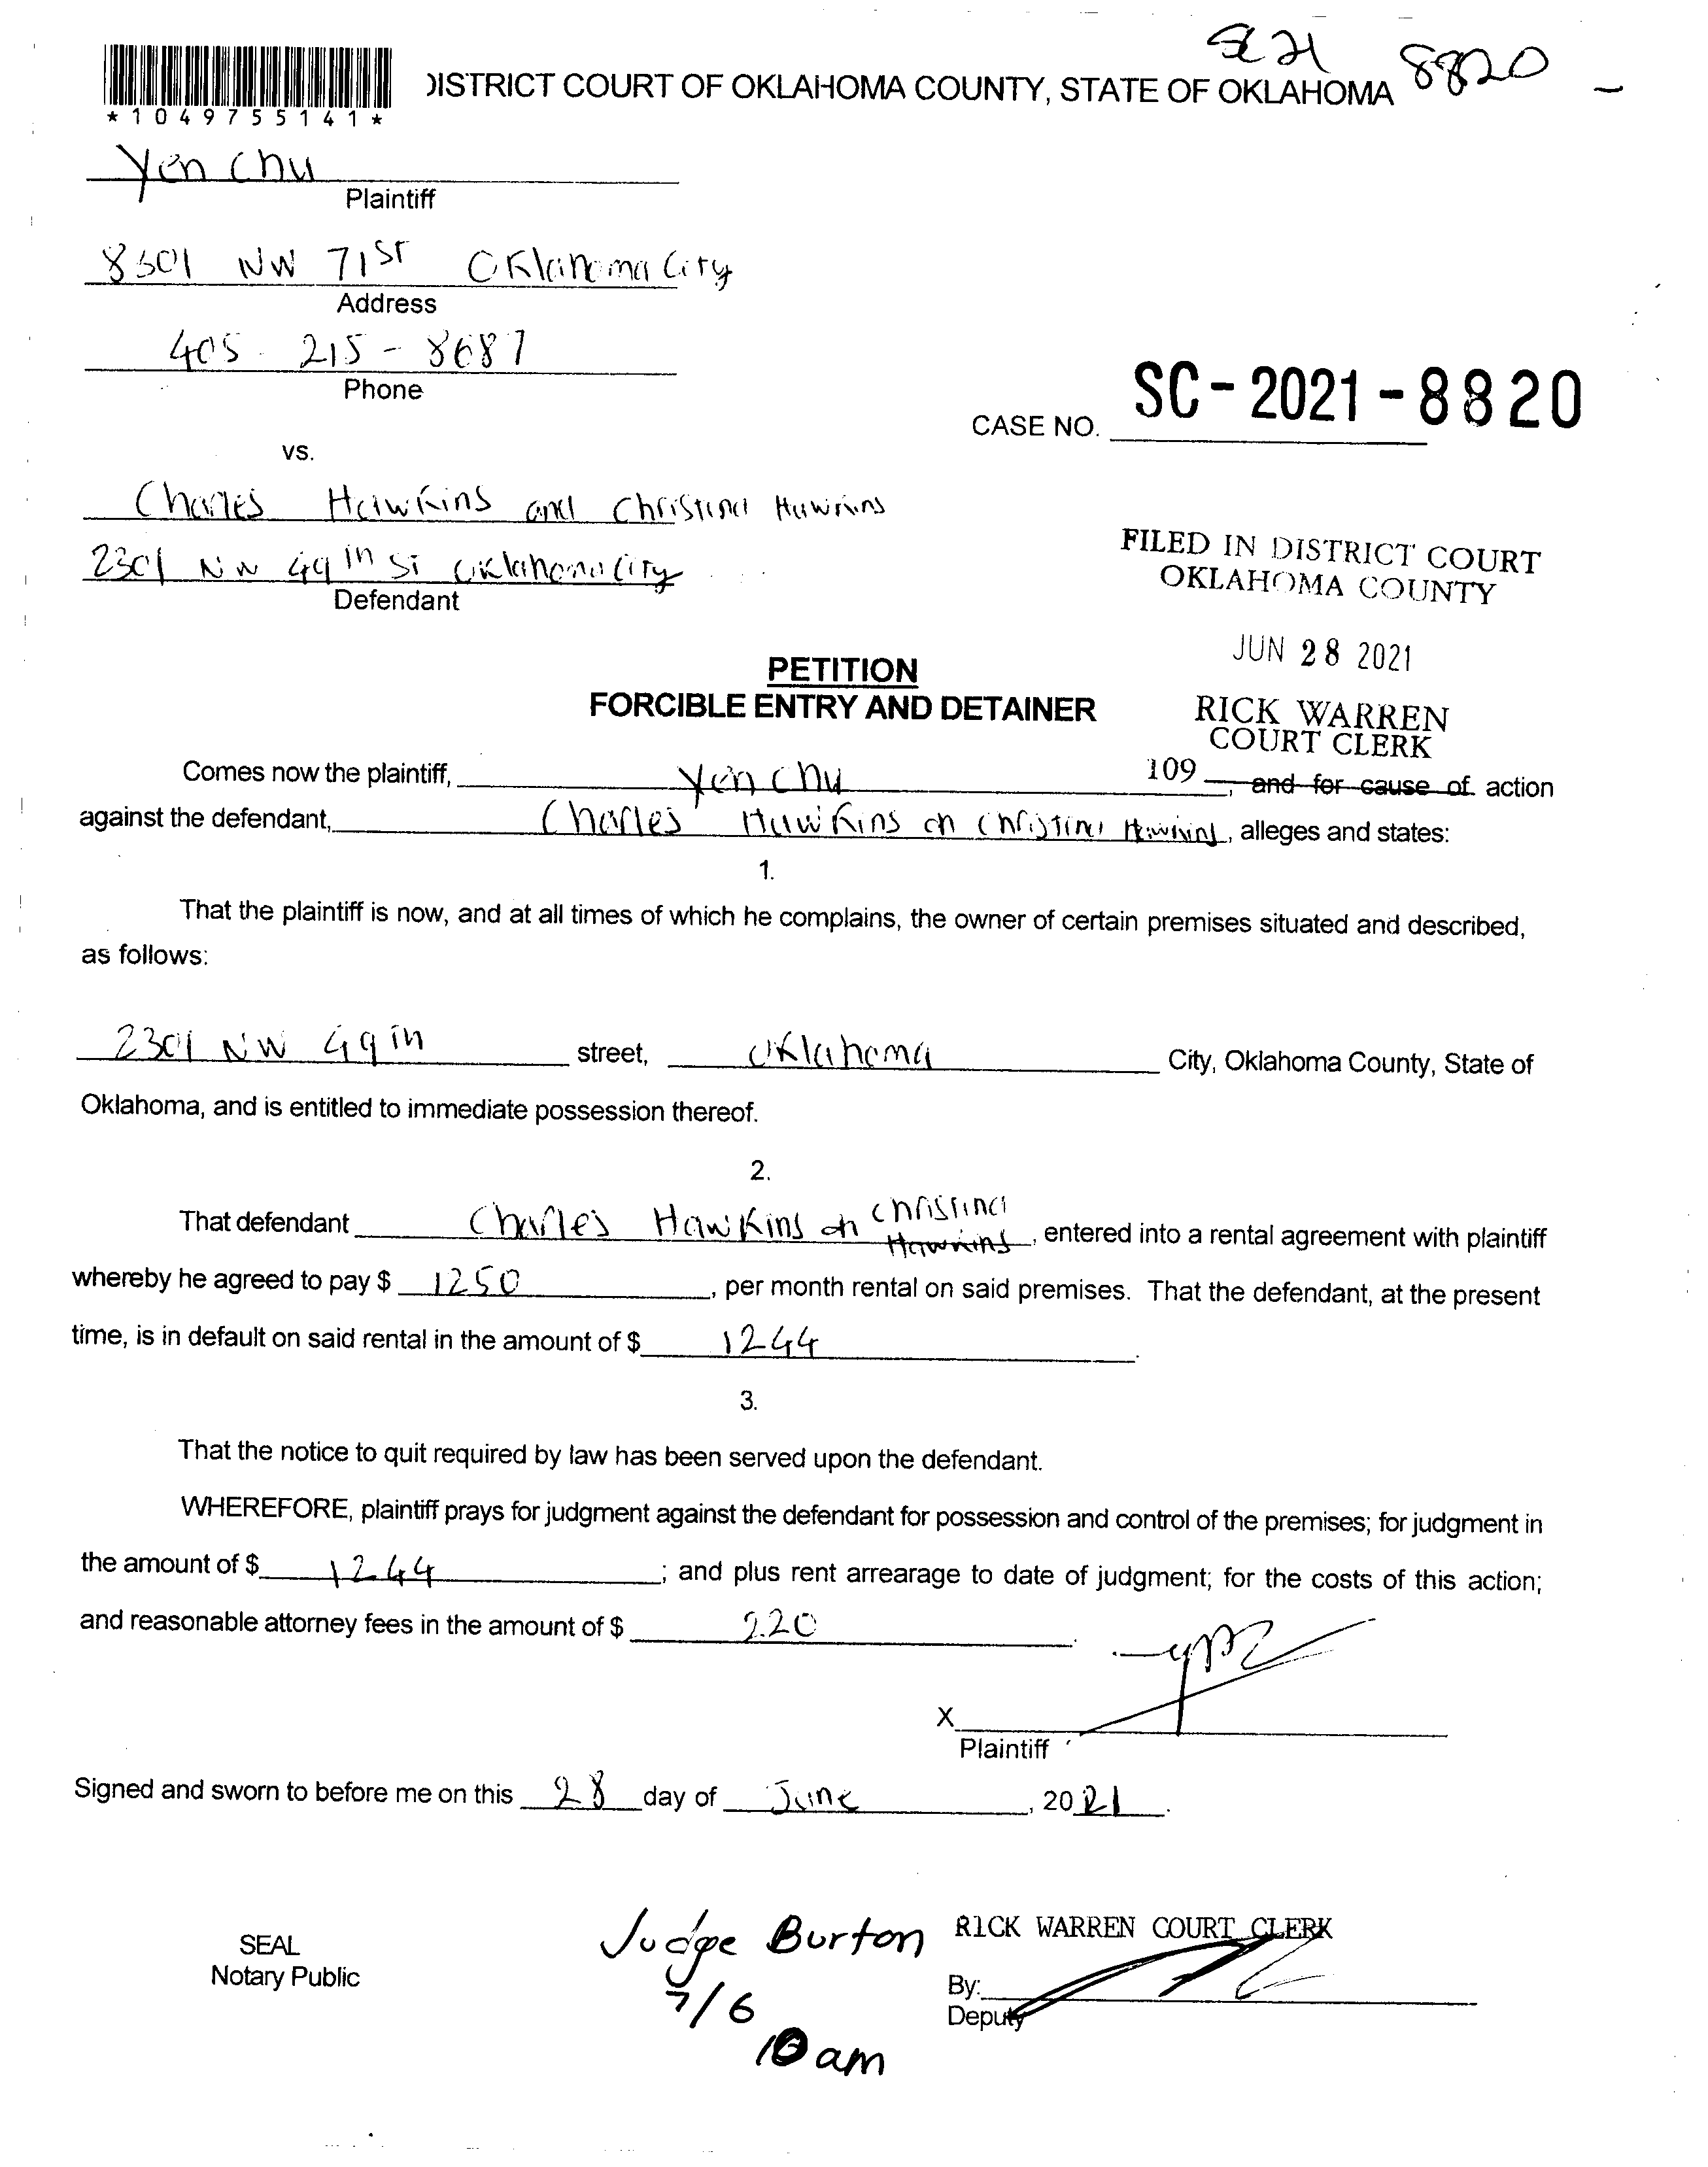 SC 21 8820
DISTRICT COURT OF OKLAHOMA COUNTY, STATE OF OKLAHOMA
*1049755141*
Yen Chu
Plaintiff
8301 NW 71st Oklahoma City
Address
405-215-8687
Phone
CASE NO. SC-2021-8820
vs.
Charles Hawkins and Christina Hawkins
2301 NW 49th St Oklahoma City
Defendant
FILED IN DISTRICT COURT
OKLAHOMA COUNTY
JUN 28 2021
RICK WARREN
COURT CLERK
109
PETITION
FORCIBLE ENTRY AND DETAINER
Comes now the plaintiff, Yen Chu, and for cause of action
against the defendant, Charles Hawkins Christina Hawkins, alleges and states:
1.
That the plaintiff is now, and at all times of which he complains, the owner of certain premises situated and described,
as follows:
2301 NW 49th street, Oklahoma City, Oklahoma County, State of
Oklahoma, and is entitled to immediate possession thereof.
2.
That defendant Charles Hawkins Christina Hawkins, entered into a rental agreement with plaintiff
whereby he agreed to pay $ 1250, per month rental on said premises. That the defendant, at the present
time, is in default on said rental in the amount of $ 1244.
3.
That the notice to quit required by law has been served upon the defendant.
WHEREFORE, plaintiff prays for judgment against the defendant for possession and control of the premises; for judgment in
the amount of $ 1244; and plus rent arrearage to date of judgment; for the costs of this action;
and reasonable attorney fees in the amount of $ 220.
X
Plaintiff
Signed and sworn to before me on this 28 day of June, 2021.
SEAL
Notary Public
Judge Burton
7/6
10 am
RICK WARREN COURT CLERK
By:
Deputy